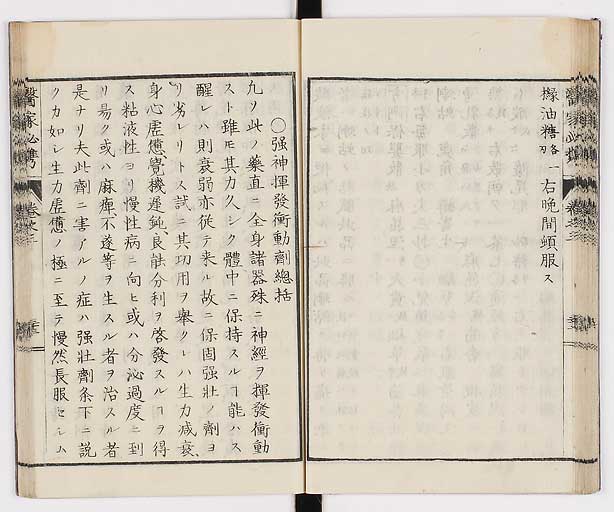 椽油糖硌一右晩間頓服ス
○强神揮發衝動劑總括
九ソ此ノ藥直ニ全身諸器殊ニ神經ヲ揮發衝動
スト雖モ其力久シク體中ニ保持スルヿ能ハス
醒レハ則衰弱亦從テ来ル故ニ保固强壯ノ劑ヨ
リ劣レリトス試ニ其功用ヲ舉クレハ生力減衰、
身心虛憊覺機遲鈍、良能分利ヲ啓發スルヿヲ得
ス粘液性ヨリ慢性病ニ向ヒ或ハ分泌過度ニ到
リ易ク或ハ麻痺不遂等ヲ生スル者ヲ治スル者
是ナリ夫此劑ニ害アルノ症ハ强壯劑条下ニ説
クカ如シ生力虛憊ノ極ニ至テ慢然長服セシム
醫家必携
卷之二